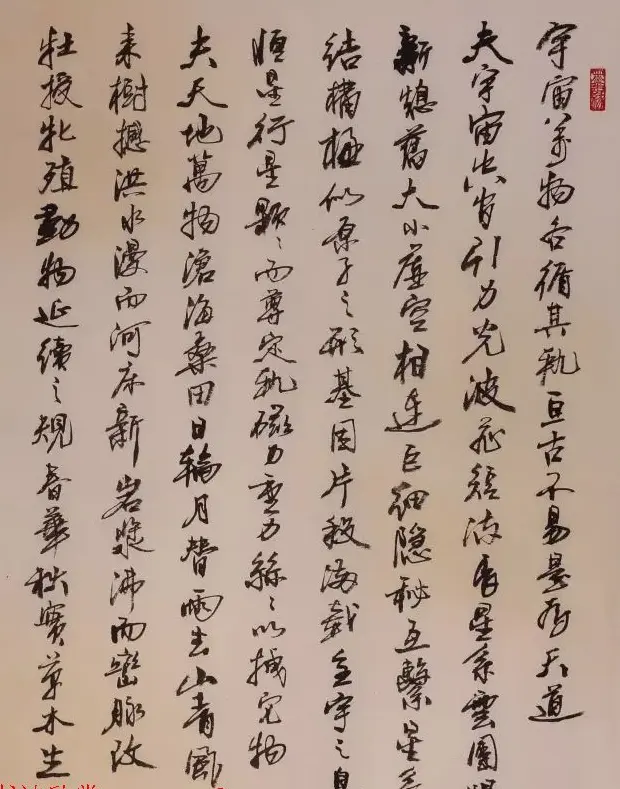 宇宙萬物各循其軌亘古不易是為天道
夫宇宙出宵引力光波疏短流長星系雲團
新熄舊大小虛空相連巨細隱秘互繫星系
結構極似原子之形基因片段滿載全宇之
恒星行星顆〻而尊定軌磁力重力絲〻以撼宅物
夫天地萬物滄海桑田日輪月替雨去山青風
来樹撼洪水漫而河床新岩漿沸而巒脉改
牡授牝殖動物延續之規春華秋實草木生